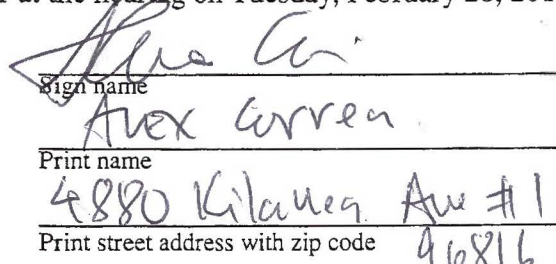 at the hearing on Tuesday, February 28, 201
Sign name
Alex Correa
Print name
4880 Kilauea Ave #1
Print street address with zip code 96816